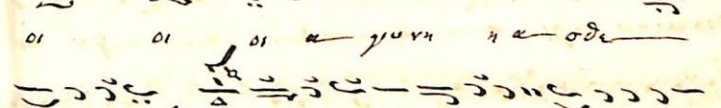 οι οι οι α γυνη η α σθε